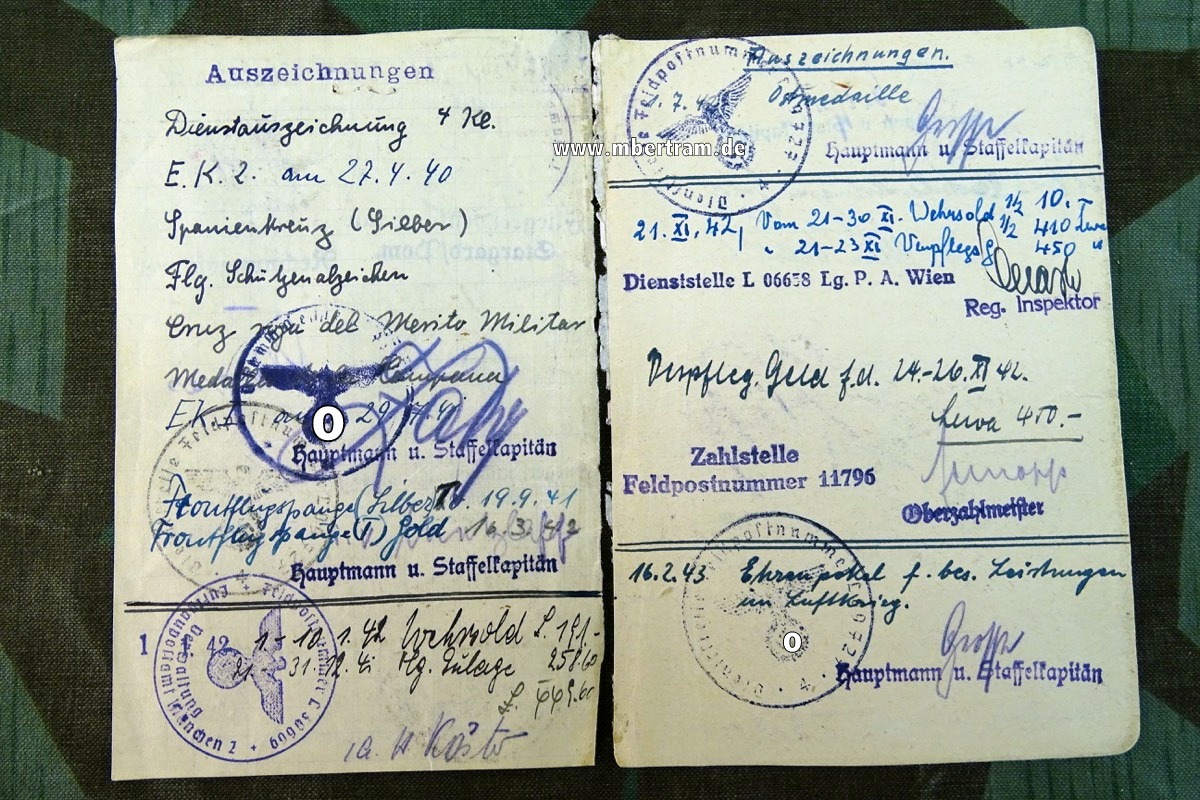 Auszeichnungen
Dienstauszeichnung 4 Kl.
E.K.2. am 27.4.40
Spanienkreuz (Silber)
Flg. Schützenabzeichen
Cruz roja del Merito Militar
Medalla de la Campana
EK I am 29.7.40
Hauptmann u. Staffelkapitän
Frontflugspange (Silber) 19.9.41
Frontflugspange (T) Gold 16.3.42
Hauptmann u. Staffelkapitän
1 1 42 1-10.1.42 Wehrsold
31.12.41 Flg. Zulage 258.60
669.60
Auszeichnungen.
7.42 Ostmedaille
www.mbertram.de
Grosse
Hauptmann u. Staffelkapitän
21.XI.42, Vom 21-30 XI. Wehrsold 1/2 10.
1/2 410 Lewa
" 21-23 XI Verpflegsg. 450 "
Dienststelle L 06658 Lg. P. A. Wien
Reg. Inspektor
Verpfleg. Geld f.d. 24.-26.XI 42.
Lewa 450.-
Zahlstelle
Feldpostnummer 11796
Oberzahlmeister
16.2.43. Ehrenpokal f. bes. Leistungen
im Luftkrieg.
Grosse
Hauptmann u. Staffelkapitän